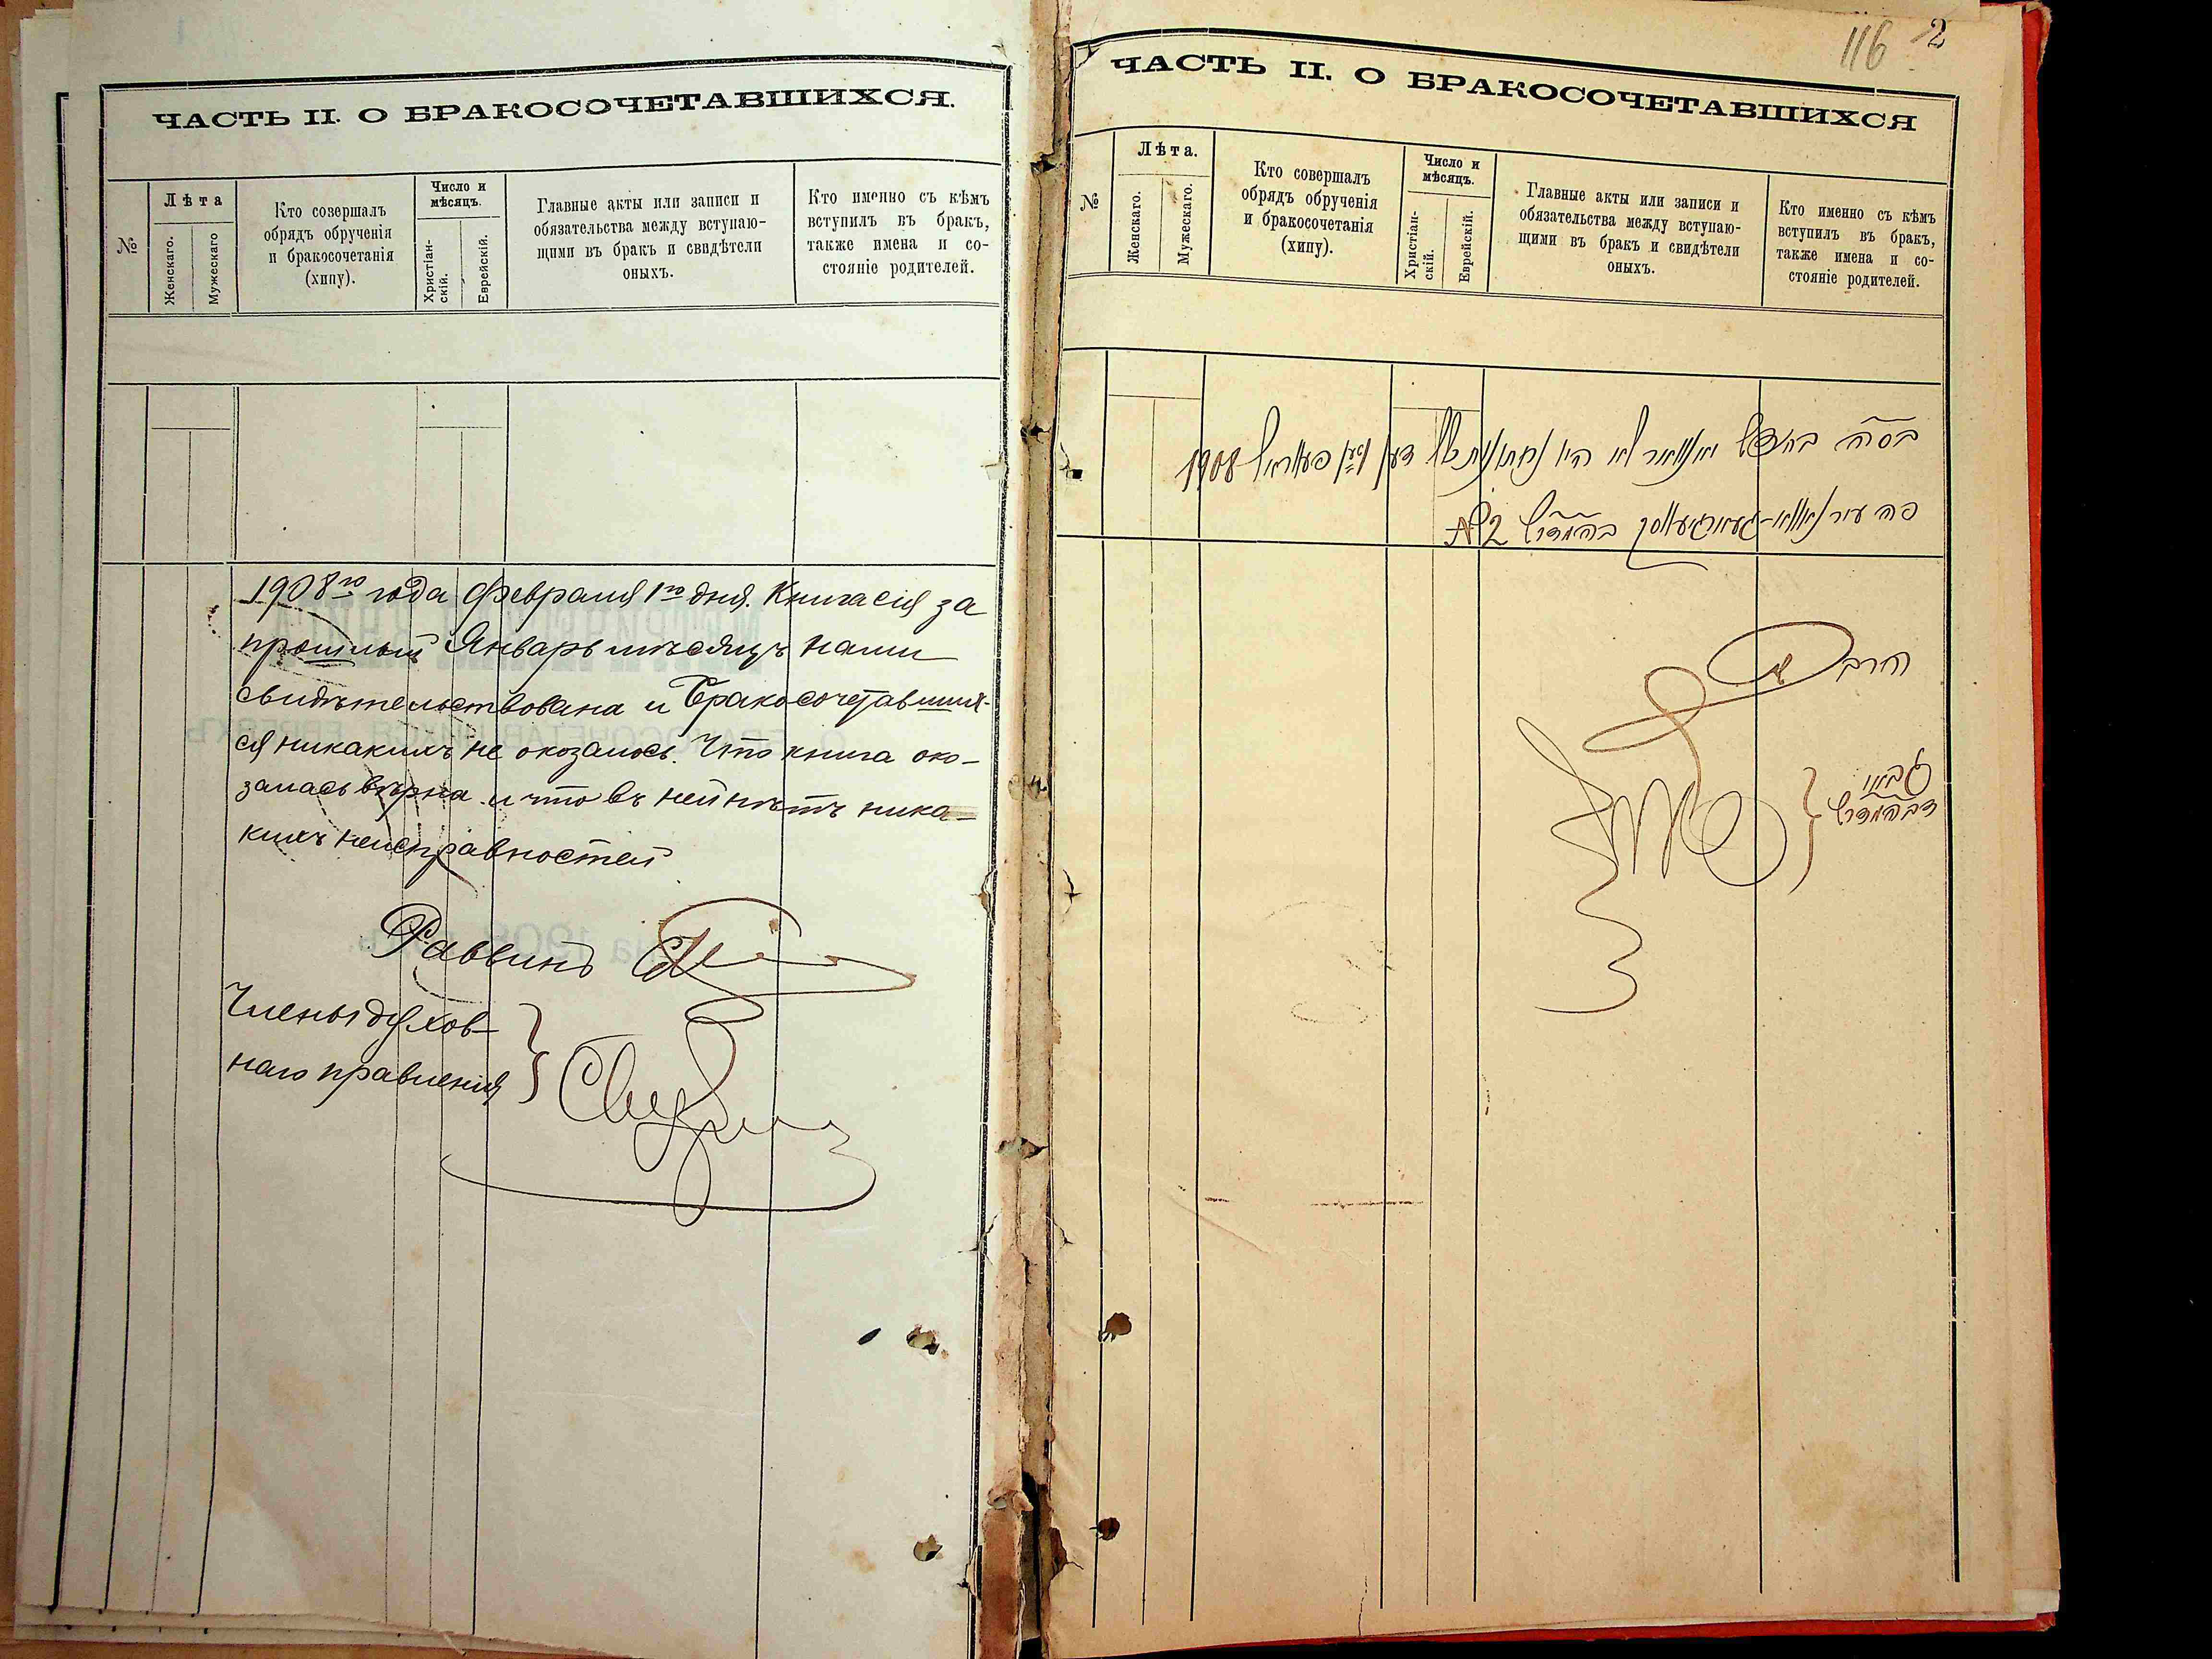 ЧАСТЬ II. О БРАКОСОЧЕТАВШИХСЯ.
№
Лѣта
Женскаго.
Мужескаго
Кто совершалъ
обрядъ обрученія
и бракосочетанія
(хипу).
Число и
мѣсяцъ.
Христіан-
скій.
Еврейскій.
Главные акты или записи и
обязательства между вступаю-
щими въ бракъ и свидѣтели
оныхъ.
Кто именно съ кѣмъ
вступилъ въ бракъ,
также имена и со-
стояніе родителей.
1908го года Февраля 1го дня. Книга сія за
прошлый Январь мѣсяцъ нами
свидѣтельствована и Бракосочетавших-
ся никакихъ не оказалось. Что книга ока-
залась вѣрна и что въ ней нѣтъ ника-
кихъ неисправностей
Раввинъ
Члены духов-
наго правленія
116 2
ЧАСТЬ II. О БРАКОСОЧЕТАВШИХСЯ
№
Лѣта.
Женскаго.
Мужескаго.
Кто совершалъ
обрядъ обрученія
и бракосочетанія
(хипу).
Число и
мѣсяцъ.
Христіан-
скій.
Еврейскій.
Главные акты или записи и
обязательства между вступаю-
щими въ бракъ и свидѣтели
оныхъ.
Кто именно съ кѣмъ
вступилъ въ бракъ,
также имена и со-
стояніе родителей.
יאנואר לא היו פעוראל 1908
פה עיר №2
הרב
גבאי
דבהמדרש